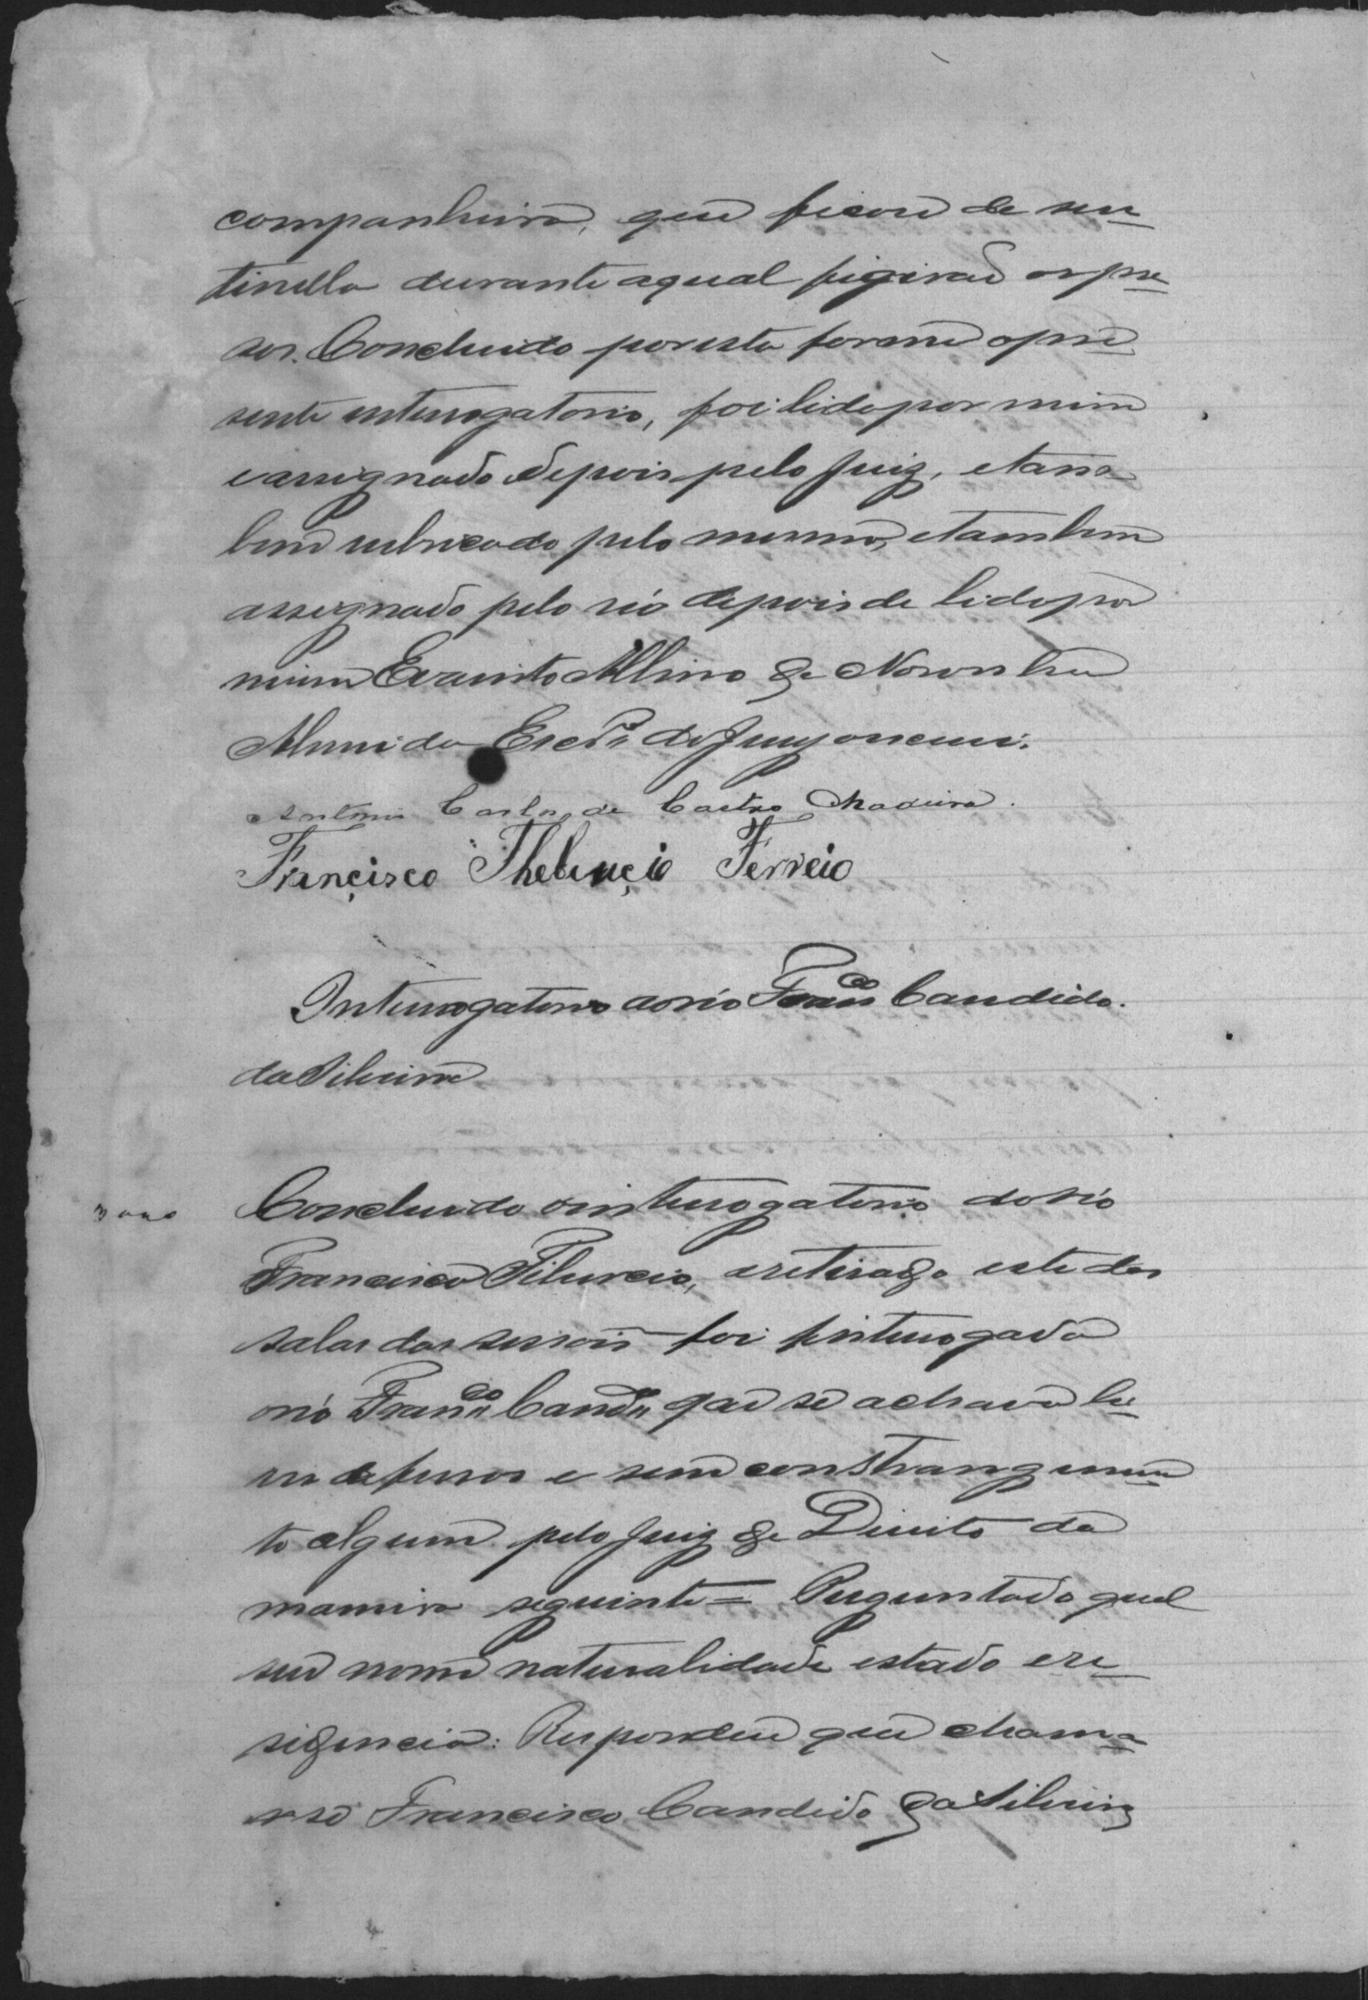 companheiro, que ficou de sen-
tinella durante a qual fugirão os pre-
sos. Concluido por esta forma o pre-
sente interrogatorio, foi lido por mim
e assignado depois pelo Juiz, e tam-
bem rubricado pelo mesmo, e tambem
assignado pelo réo depois de lido por
mim Evaristo Albino de Noronha
Almeida Escrº do Jury o escrevi.
Antonio Carlos de Castro Madeira.
Françisco Thelençio Ferreio
Interrogatorio ao réo Franco Candido
da Silveira
Concluido o interrogatorio do réo
Francisco Tilencio, e retirado este das
salas das sessois foi interrogado
o réo Franco Cando que se achava li-
vre de ferros e sem constrangimen-
to algum pelo Juiz de Direito da
maneira seguinte = Perguntado qual
seu nome naturalidade estado e re-
sidencia: Respondeu que chama-
va se Francisco Candido da Silveira